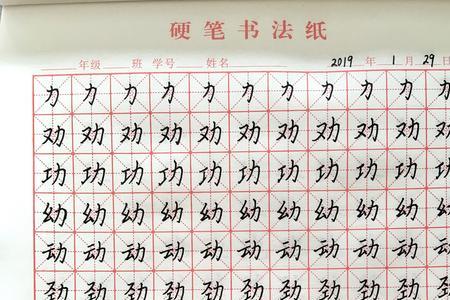 硬笔书法纸
年级 班 学号 姓名 2019 年 1 月 29 日
力 力 力 力 力 力 力 力 力 力 力
劝 劝 劝 劝 劝 劝 劝 劝 劝 劝 劝
功 功 功 功 功 功 功 功 功 功 功
幼 幼 幼 幼 幼 幼 幼 幼 幼 幼 幼
动 动 动 动 动 动 动 动 动 动 动
劲 劲 劲 劲 劲 劲 劲 劲 劲 劲 劲